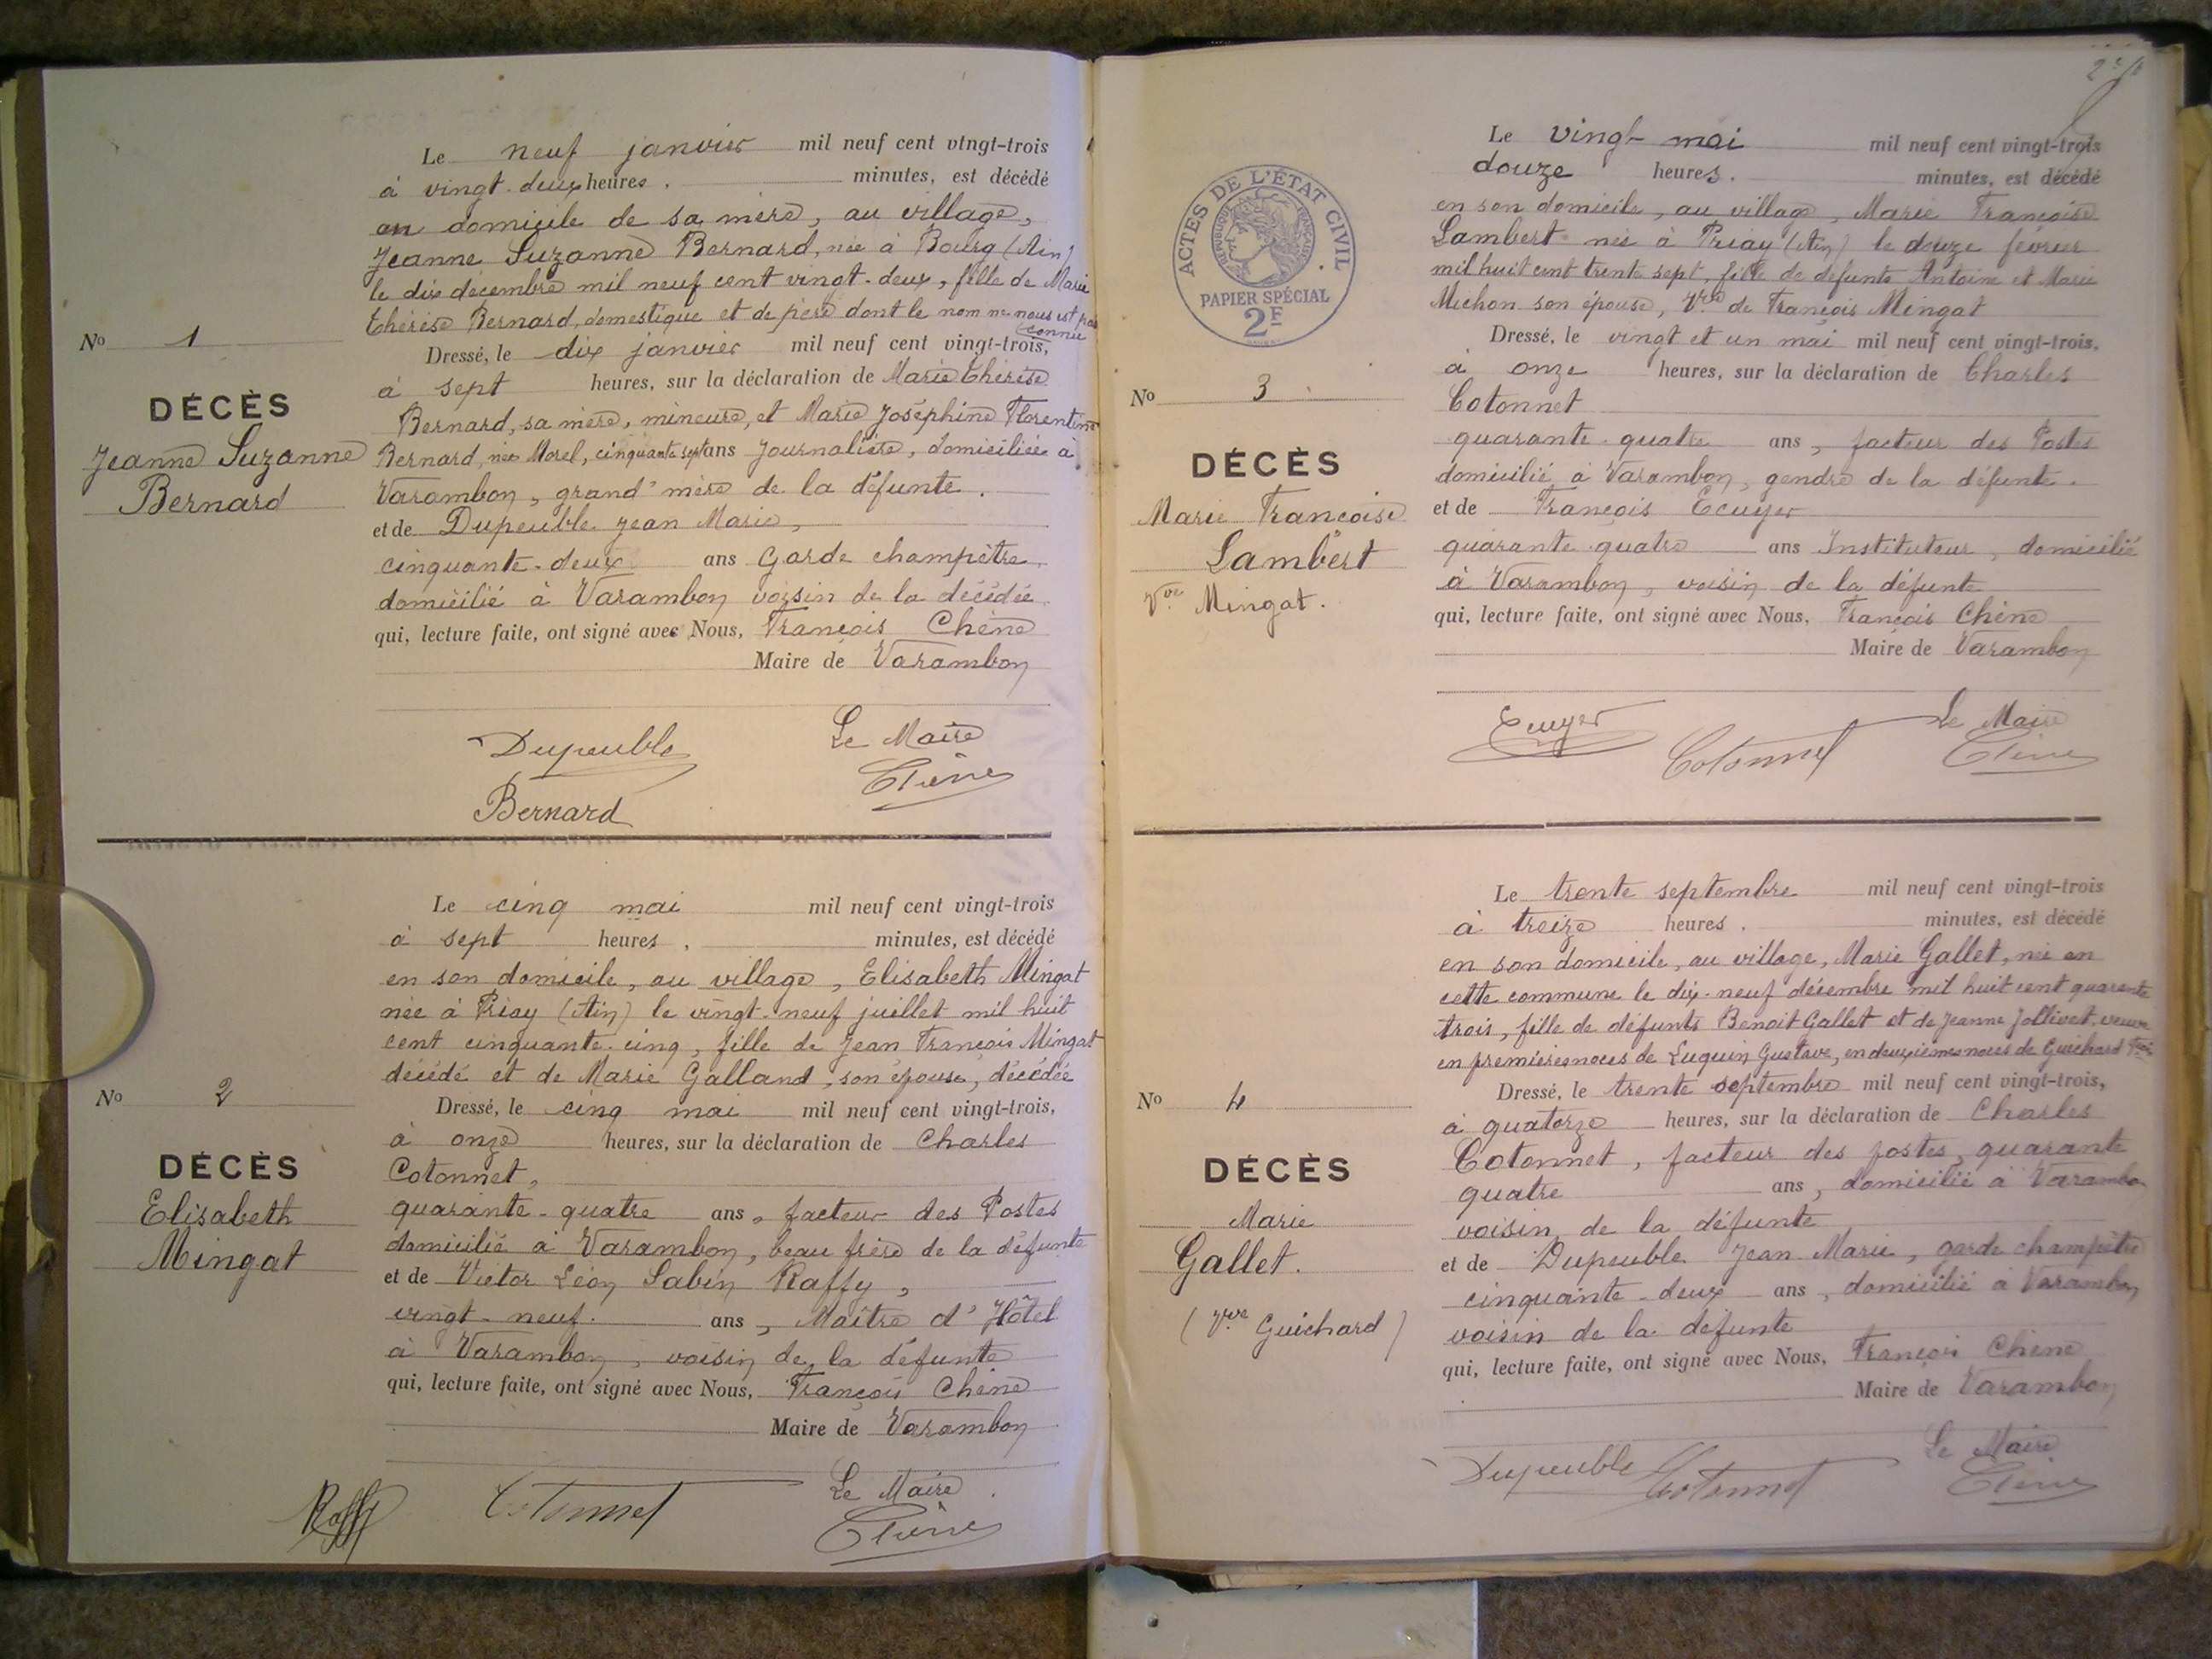 Le neuf janvier mil neuf cent vingt-trois
à vingt-deux heures, minutes, est décédé
au domicile de sa mère, au village,
Jeanne Suzanne Bernard, née à Bourg (Ain)
le dix décembre mil neuf cent vingt-deux, fille de Marie
Thérèse Bernard, domestique et de père dont le nom ne nous est pas
connu
No 1
Dressé, le dix janvier mil neuf cent vingt-trois,
à sept heures, sur la déclaration de Marie Thérèse
DÉCÈS
Bernard, sa mère, mineure, et Marie Joséphine Florentine
Jeanne Suzanne
Bernard, née Morel, cinquante sept ans Journalière, domiciliée à
Bernard
Varambon, grand'mère de la défunte.
et de Dupeuble Jean Marie,
cinquante-deux ans Garde champêtre
domicilié à Varambon voisin de la décédée
qui, lecture faite, ont signé avec Nous, François Chêne
Maire de Varambon
Dupeuble
Le Maire
Chêne
Bernard
Le cinq mai mil neuf cent vingt-trois
à sept heures, minutes, est décédé
en son domicile, au village, Elisabeth Mingat
née à Priay (Ain) le vingt-neuf juillet mil huit
cent cinquante-cinq, fille de Jean François Mingat
décédé et de Marie Galland, son épouse, décédée
No 2
Dressé, le cinq mai mil neuf cent vingt-trois,
à onze heures, sur la déclaration de Charles
DÉCÈS
Cotonnet,
Elisabeth
quarante-quatre ans, facteur des Postes
Mingat
domicilié à Varambon, beau frère de la défunte
et de Victor Léon Sabin Raffy,
vingt-neuf ans, Maître d'Hôtel
à Varambon, voisin de la défunte
qui, lecture faite, ont signé avec Nous, François Chêne
Maire de Varambon
Raffy
Cotonnet
Le Maire
Chêne
ACTES DE L'ÉTAT CIVIL
RÉPUBLIQUE FRANÇAISE
PAPIER SPÉCIAL
2F
Le vingt mai mil neuf cent vingt-trois
douze heures. minutes, est décédé
en son domicile, au village, Marie Françoise
Lambert née à Priay (Ain) le douze février
mil huit cent trente sept, fille de défunts Antoine et Marie
Michon son épouse, Vve de François Mingat
No 3
Dressé, le vingt et un mai mil neuf cent vingt-trois,
à onze heures, sur la déclaration de Charles
Cotonnet
quarante-quatre ans, facteur des Postes
DÉCÈS
domicilié à Varambon, gendre de la défunte.
Marie Françoise
et de François Ecuyer
Lambert
quarante-quatre ans Instituteur, domicilié
Vve Mingat.
à Varambon, voisin de la défunte
qui, lecture faite, ont signé avec Nous, François Chêne
Maire de Varambon
Ecuyer
Cotonnet
Le Maire
Chêne
Le trente septembre mil neuf cent vingt-trois
à treize heures. minutes, est décédé
en son domicile, au village, Marie Gallet, née en
cette commune le dix-neuf décembre mil huit cent quarante
trois, fille de défunts Benoit Gallet et de Jeanne Jollivet, veuve
en premières noces de Luquin Gustave, en deuxièmes noces de Guichard
No 4
Dressé, le trente septembre mil neuf cent vingt-trois,
à quatorze heures, sur la déclaration de Charles
Cotonnet, facteur des postes, quarante
DÉCÈS
quatre ans, domicilié à Varambon
Marie
voisin de la défunte
Gallet.
et de Dupeuble Jean Marie, garde champêtre
cinquante-deux ans, domicilié à Varambon
(Vve Guichard)
voisin de la défunte
qui, lecture faite, ont signé avec Nous, François Chêne
Maire de Varambon
Dupeuble
Cotonnet
Le Maire
Chêne